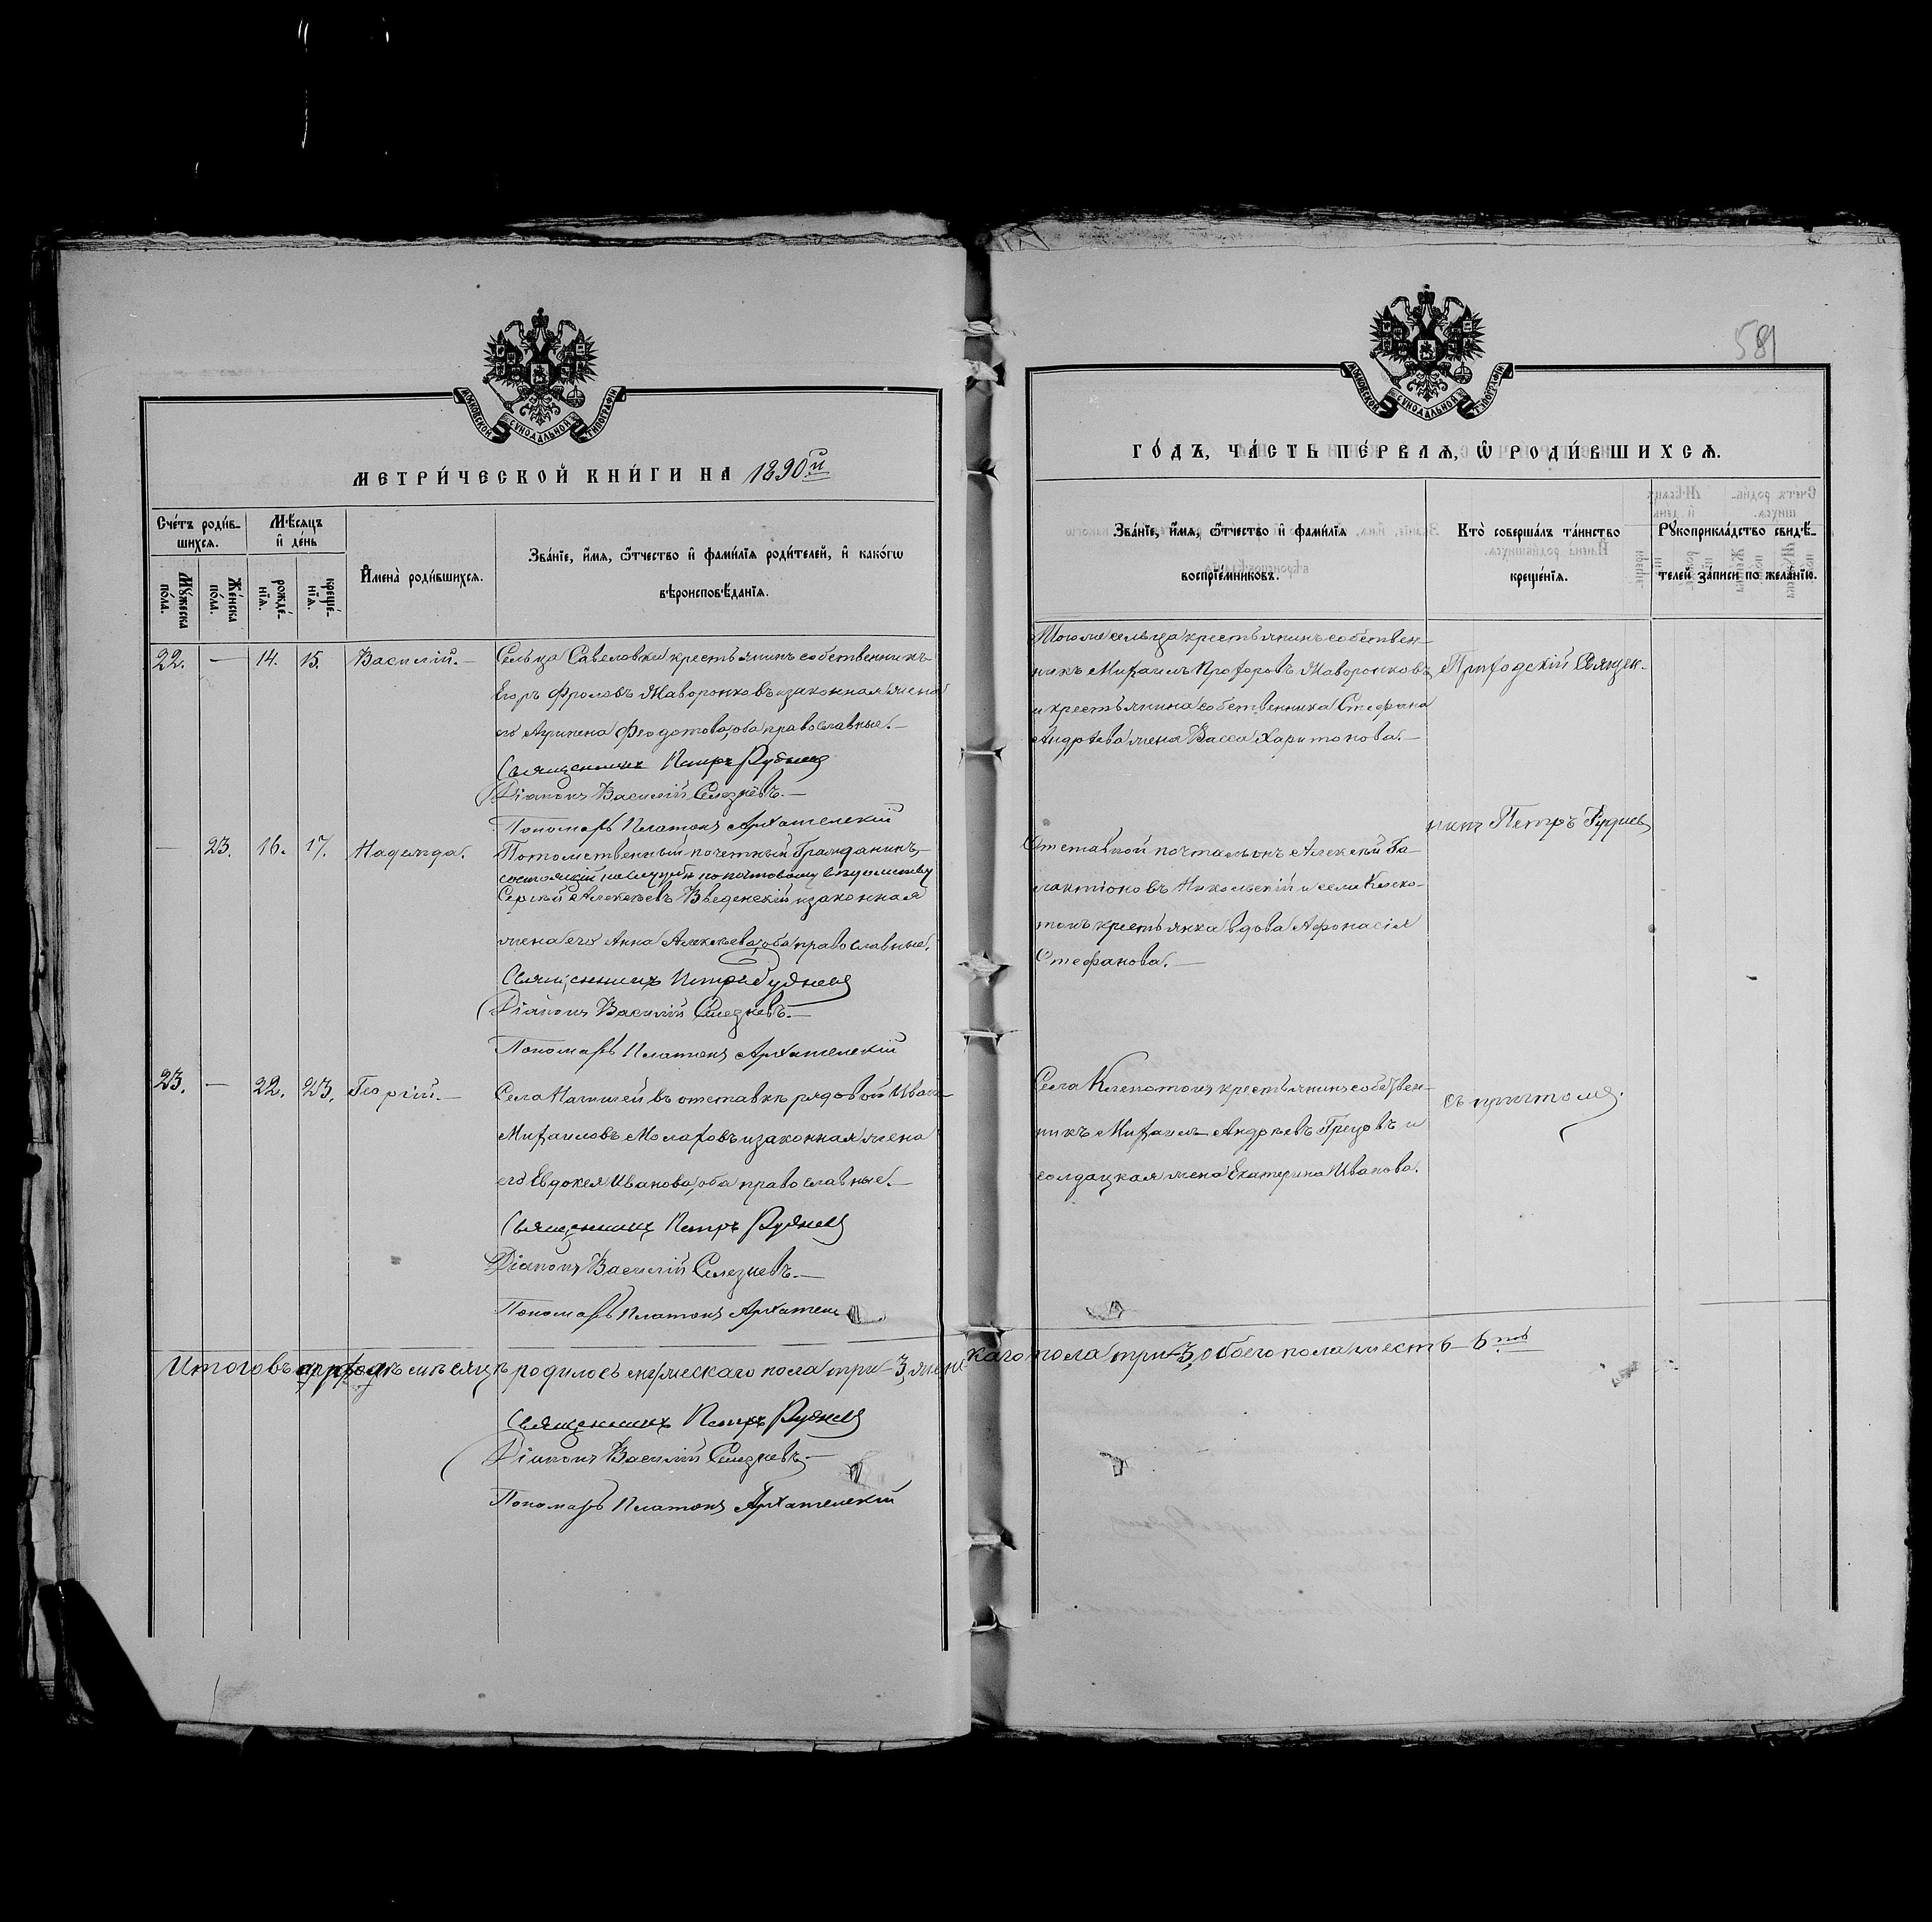 МОСКОВСКОЙ СѴНОДАЛЬНОЙ ТИПОГРАФІИ
МЕТРИ́ЧЕСКОЙ КНИ́ГИ НА 1890й
Сче́тъ роди́в-
шихся.
Мѣ́сяцъ
и҆ де́нь
Мꙋ́жеска
по́ла.
Же́нска
пола.
рожде́-
нїѧ.
креще́-
нїѧ.
И҆мена̀ роди́вшихся.
Зва́нїе, и҆́мѧ, ѻ҆́тчество и҆ фами́лїѧ роди́телей, и҆ како́гѡ
вѣроисповѣ́данїѧ.
22. — 14. 15. Василій.—
Сельца Савеловки крестьянинъ собственникъ
Егоръ Фроловъ Жаворонковъ и законная жена
его Агрипена Феодотова, оба православные.—
Священникъ Петръ Руднев
Діаконъ Василій Селезневъ.—
Пономарь Платонъ Архангелскій
— 23. 16. 17. Надежда.
Потомственный почетный Гражданинъ,
состоящій на службѣ по почтовому вѣдомству
Сергѣй Алексѣевъ Введенскій и законная
жена его Анна Алексѣева, оба православные.
Священникъ Петръ Руднев
Діаконъ Василій Селезневъ.—
Пономарь Платонъ Архангелскій
23. — 22. 23. Георгій.—
Села въ отставкѣ рядовой Иванъ
Михаиловъ и законная жена
его Евдокея Иванова, оба православные.—
Священникъ Петръ Руднев
Діаконъ Василій Селезневъ.—
Пономарь Платонъ
Итого въ мѣсяцѣ родилось мужескаго пола три—3, женс
Священникъ Петръ Руднев
Діаконъ Василій Селезневъ.—
Пономарь Платонъ Архангелскій
581
МОСКОВСКОЙ СѴНОДАЛЬНОЙ ТИПОГРАФІИ
ГО́ДЪ, ЧА́СТЬ ПЕ́РВАѦ, Ѡ҆ РОДИ́ВШИХСѦ.
Зва́нїе, и҆́мѧ, ѻ҆́тчество и҆ фами́лїѧ
воспрїе́мниковъ.
Кто̀ соверша́лъ та́инство
креще́нїѧ.
Рꙋкоприкла́дство свидѣ́-
телей за́писи по жела́нїю.
Того же сельца крестьянинъ собствен-
никъ Михаилъ Прохоровъ Жаворонковъ
и крестьянина собственника Стефана
Андреева жена Васса Харитонова.—
Приходскій Священ-
никъ Петръ Руднев
съ причтомъ.
Отставной почталіонъ Алексѣй Га-
лактіоновъ Никольскій и села
крестьянка вдова Афонасія
Стефанова.—
Села крестьянинъ собствен-
никъ Михаилъ Андреевъ Грецовъ и
солдацкая жена Екатерина Иванова.
каго пола три—3, обоего пола шесть—6ть